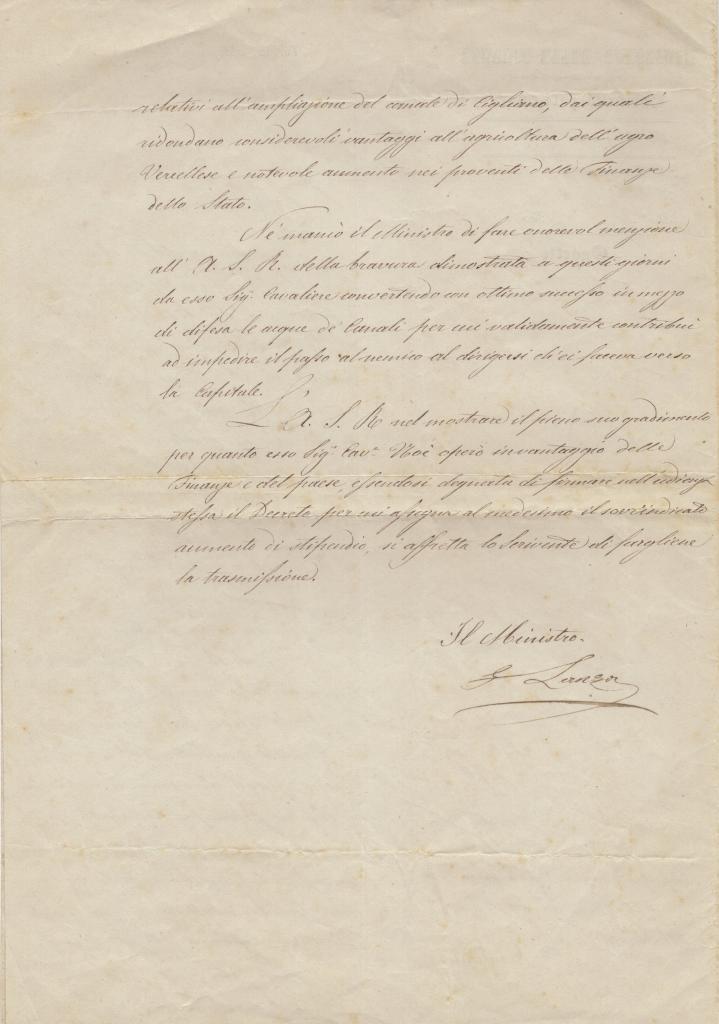 relativi all'ampliazione del canale di Cigliano, dai quali
ridondano considerevoli vantaggi all'agricoltura dell'agro
Vercellese e notevole aumento nei proventi delle Finanze
dello Stato.
Nè mancò il Ministro di fare onorevol menzione
all' A. S. R. della bravura dimostrata a questi giorni
da esso Sig. Cavaliere convertendo con ottimo successo in mezzo
di difesa le acque de' Canali per cui validamente contribuì
ad impedire il passo al nemico al dirigersi ch'ei faceva verso
la Capitale.
L' A. S. R. nel mostrare il pieno suo gradimento
per quanto esso Sig. Cav. Noè operò in vantaggio delle
Finanze e del paese, essendosi degnata di firmare nell'udienza
stessa il Decreto per cui assegna al medesimo il sovrindicato
aumento di stipendio, si affretta lo Scrivente di fargliene
la trasmissione.
Il Ministro.
G Lanza